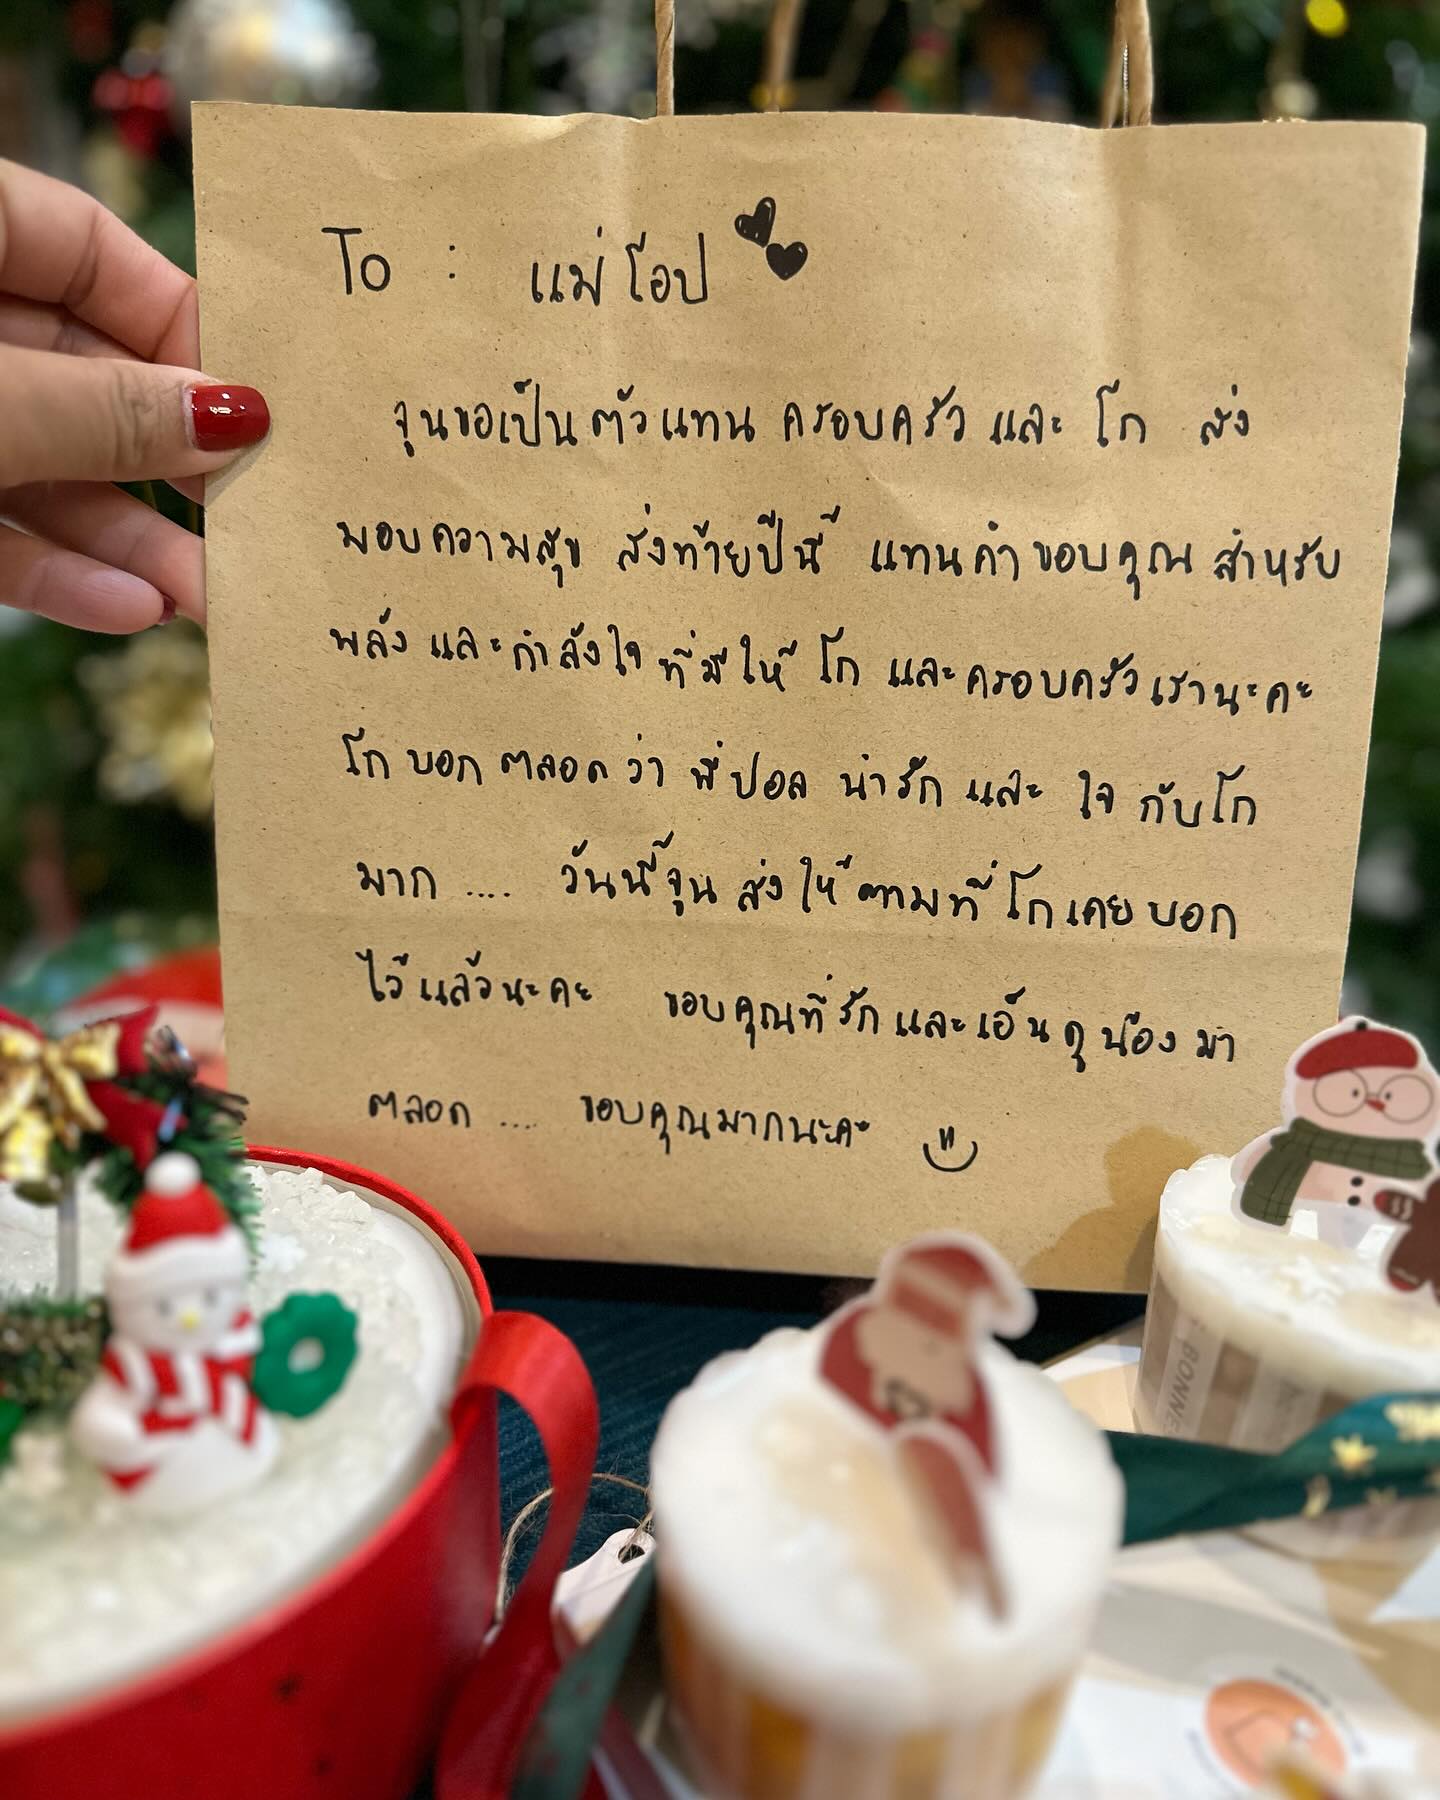 To : แม่โอป
จุนขอเป็นตัวแทน ครอบครัว และ โก ส่ง
มอบความสุข ส่งท้ายปีนี้ แทนคำขอบคุณ สำหรับ
พลัง และกำลังใจ ที่มีให้ โก และครอบครัวเรานะคะ
โกบอกตลอดว่า พี่ปอล น่ารัก และ ใจ กับโก
มาก .... วันนี้จุน ส่งให้ตามที่โกเคยบอก
ไว้แล้วนะคะ ขอบคุณที่รักและเอ็นดูน้อง มา
ตลอด .... ขอบคุณมากนะคะ